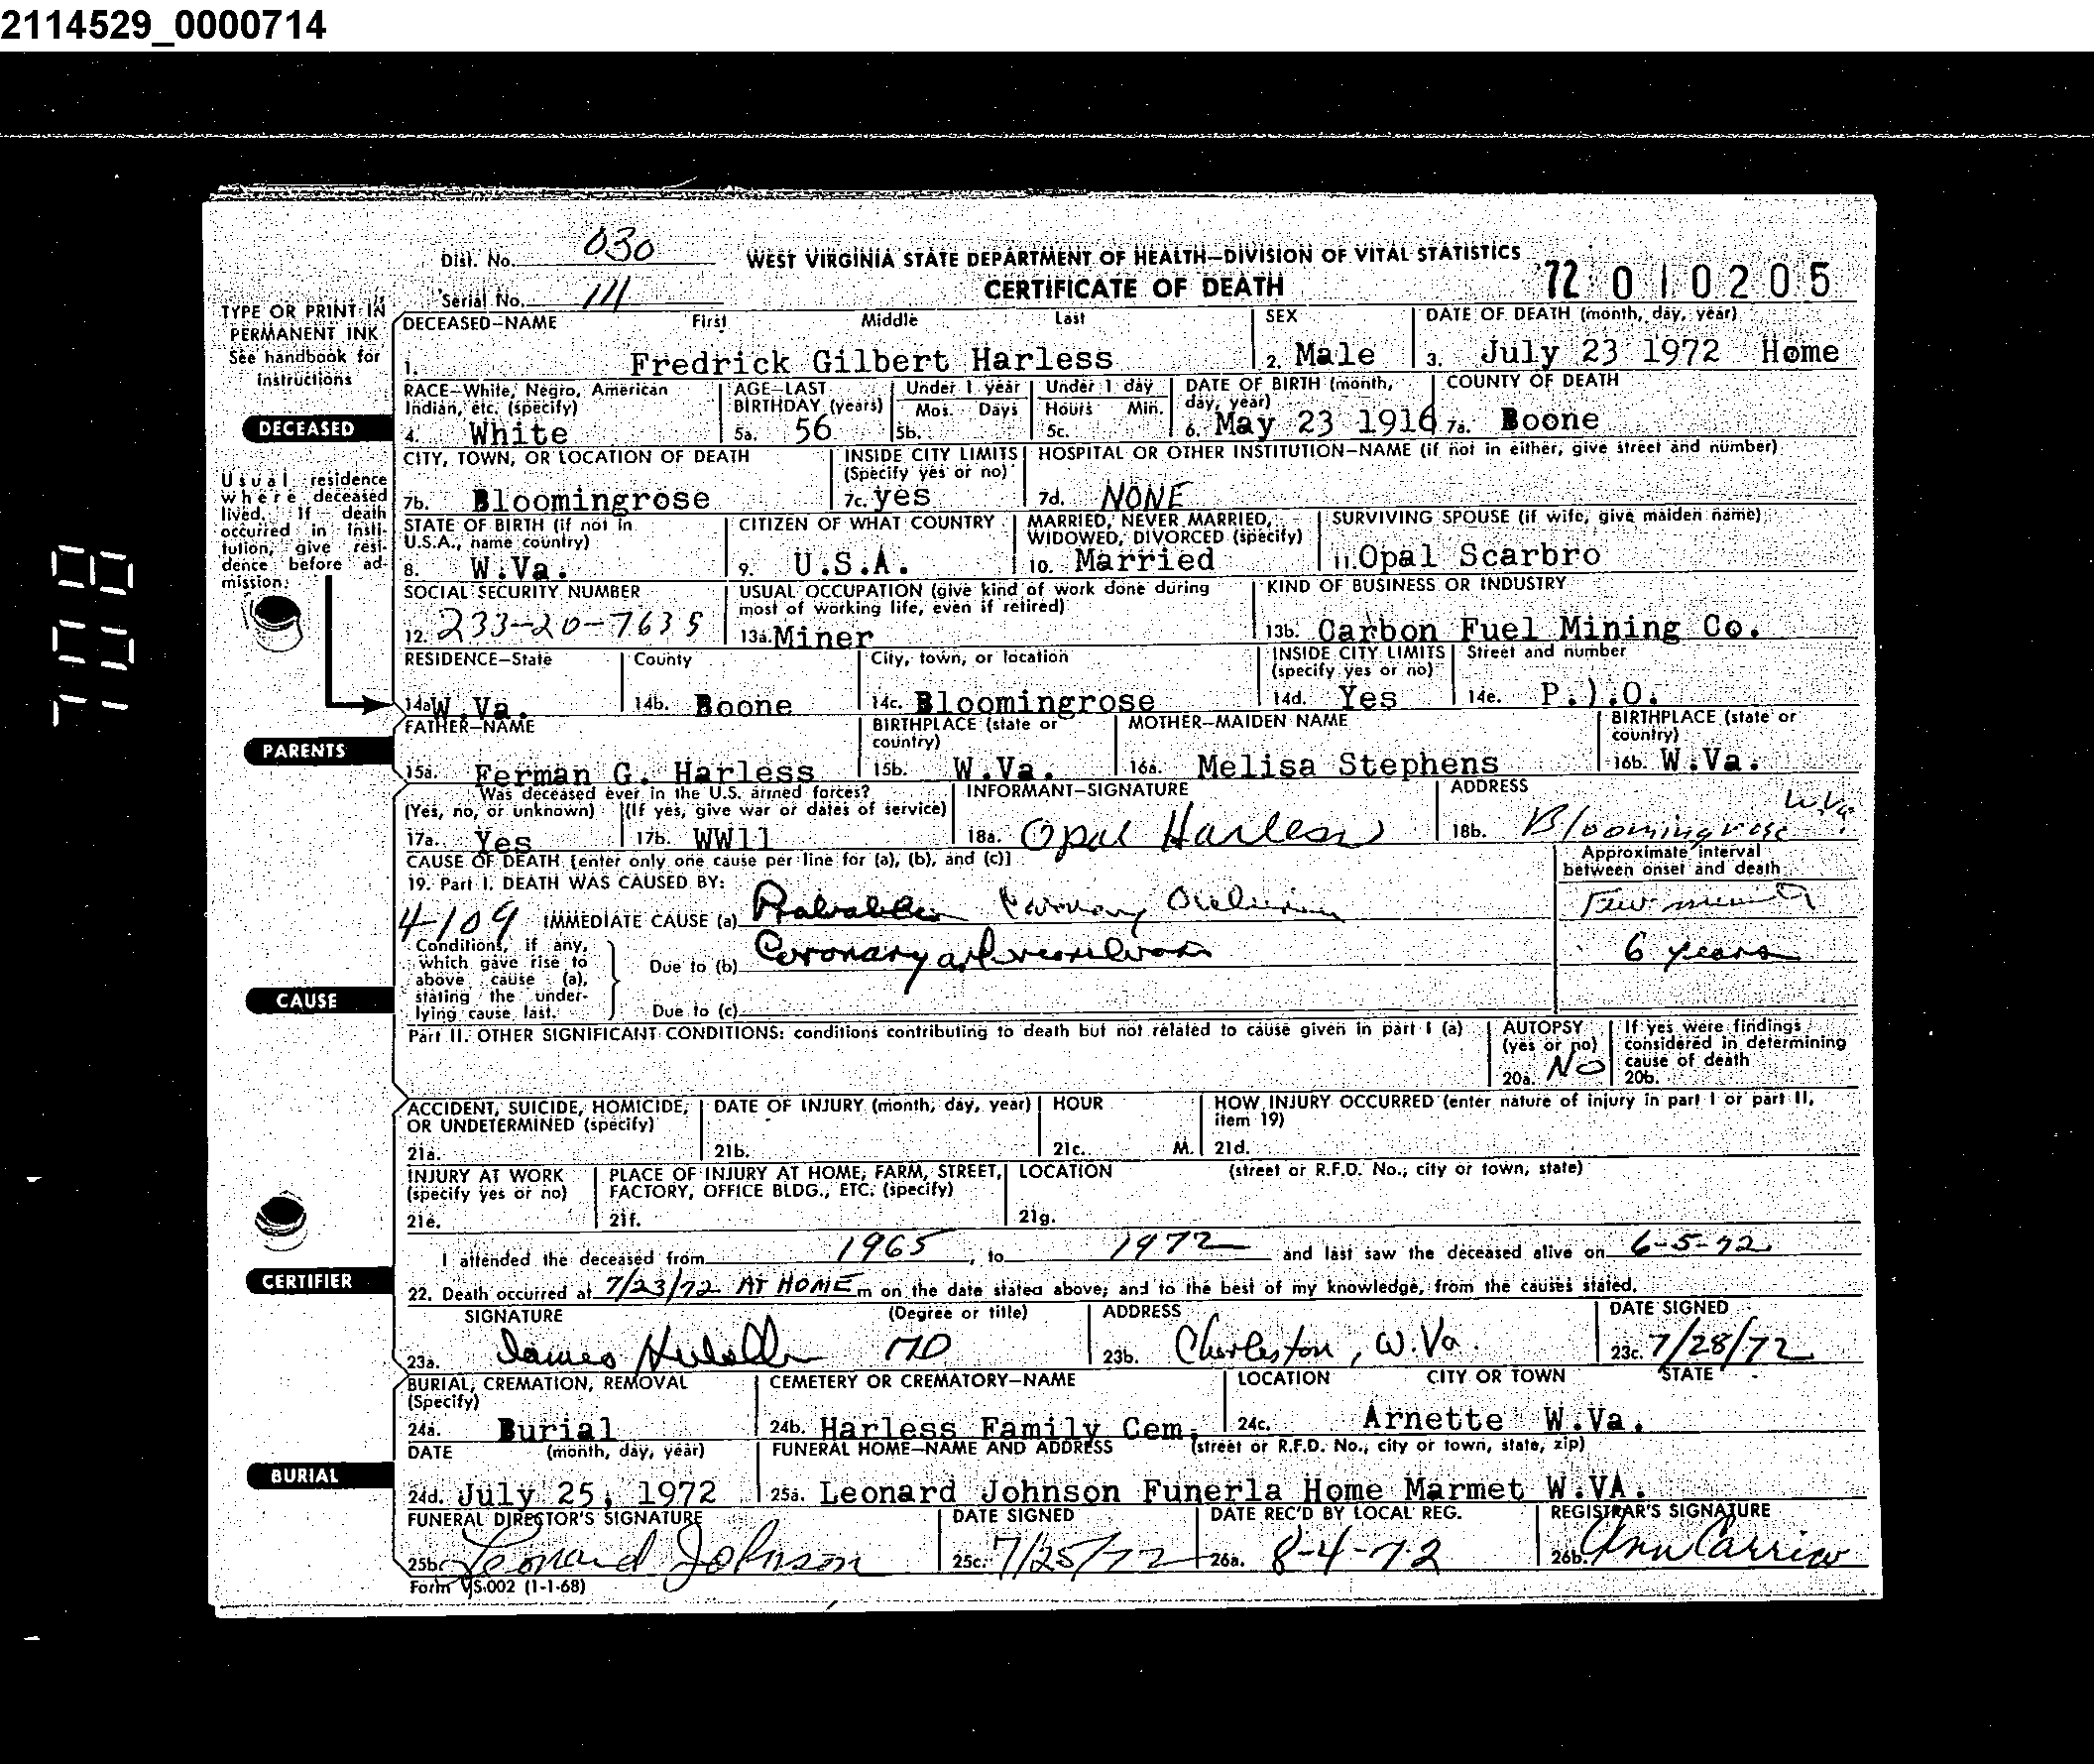 2114529_0000714
Dist. No. 030
WEST VIRGINIA STATE DEPARTMENT OF HEALTH—DIVISION OF VITAL STATISTICS
Serial No. 111
CERTIFICATE OF DEATH
72 010205
TYPE OR PRINT IN
PERMANENT INK
See handbook for
instructions
DECEASED—NAME First Middle Last
1. Fredrick Gilbert Harless
SEX
2. Male
DATE OF DEATH (month, day, year)
3. July 23 1972 Home
DECEASED
RACE—White, Negro, American
Indian, etc. (specify)
4. White
AGE—LAST
BIRTHDAY (years)
5a. 56
Under 1 year
Mos. Days
5b.
Under 1 day
Hours Min.
5c.
DATE OF BIRTH (month,
day, year)
6. May 23 1916
COUNTY OF DEATH
7a. Boone
Usual residence
where deceased
lived. If death
occurred in insti-
tution, give resi-
dence before ad-
mission.
CITY, TOWN, OR LOCATION OF DEATH
7b. Bloomingrose
INSIDE CITY LIMITS
(Specify yes or no)
7c. yes
HOSPITAL OR OTHER INSTITUTION—NAME (if not in either, give street and number)
7d. NONE
STATE OF BIRTH (if not in
U.S.A., name country)
8. W.Va.
CITIZEN OF WHAT COUNTRY
9. U.S.A.
MARRIED, NEVER MARRIED,
WIDOWED, DIVORCED (specify)
10. Married
SURVIVING SPOUSE (if wife, give maiden name)
11. Opal Scarbro
SOCIAL SECURITY NUMBER
12. 233-20-7635
USUAL OCCUPATION (give kind of work done during
most of working life, even if retired)
13a. Miner
KIND OF BUSINESS OR INDUSTRY
13b. Carbon Fuel Mining Co.
RESIDENCE—State
14a W.Va.
County
14b. Boone
City, town, or location
14c. Bloomingrose
INSIDE CITY LIMITS
(specify yes or no)
14d. Yes
Street and number
14e. P.).O.
PARENTS
FATHER—NAME
15a. Ferman G. Harless
BIRTHPLACE (state or
country)
15b. W.Va.
MOTHER—MAIDEN NAME
16a. Melisa Stephens
BIRTHPLACE (state or
country)
16b. W.Va.
Was deceased ever in the U.S. armed forces?
(Yes, no, or unknown) (If yes, give war or dates of service)
17a. Yes
17b. WW11
INFORMANT—SIGNATURE
18a. Opal Harless
ADDRESS
18b. Bloomingrose W.Va.
CAUSE OF DEATH [enter only one cause per line for (a), (b), and (c)]
19. Part I. DEATH WAS CAUSED BY:
Approximate interval
between onset and death
4109
IMMEDIATE CAUSE (a) Coronary Occlusion
Few
Conditions, if any,
which gave rise to
above cause (a),
stating the under-
lying cause last.
Due to (b) Coronary
6 years
Due to (c)
CAUSE
Part II. OTHER SIGNIFICANT CONDITIONS: conditions contributing to death but not related to cause given in part I (a)
AUTOPSY
(yes or no)
20a. NO
If yes were findings
considered in determining
cause of death
20b.
ACCIDENT, SUICIDE, HOMICIDE,
OR UNDETERMINED (specify)
21a.
DATE OF INJURY (month, day, year)
21b.
HOUR
21c. M.
HOW INJURY OCCURRED (enter nature of injury in part I or part II,
item 19)
21d.
INJURY AT WORK
(specify yes or no)
21e.
PLACE OF INJURY AT HOME, FARM, STREET,
FACTORY, OFFICE BLDG., ETC. (specify)
21f.
LOCATION (street or R.F.D. No., city or town, state)
21g.
CERTIFIER
I attended the deceased from 1965, to 1972 and last saw the deceased alive on 6-5-72
22. Death occurred at 7/23/72 AT HOME m on the date stated above; and to the best of my knowledge, from the causes stated.
SIGNATURE (Degree or title)
23a. James MD
ADDRESS
23b. Charleston, W.Va.
DATE SIGNED
23c. 7/28/72
BURIAL, CREMATION, REMOVAL
(Specify)
24a. Burial
CEMETERY OR CREMATORY—NAME
24b. Harless Family Cem.
LOCATION CITY OR TOWN STATE
24c. Arnette W.Va.
BURIAL
DATE (month, day, year)
24d. July 25, 1972
FUNERAL HOME—NAME AND ADDRESS (street or R.F.D. No., city or town, state, zip)
25a. Leonard Johnson Funerla Home Marmet W.VA.
FUNERAL DIRECTOR'S SIGNATURE
25b. Leonard Johnson
DATE SIGNED
25c. 7/25/72
DATE REC'D BY LOCAL REG.
26a. 8-4-72
REGISTRAR'S SIGNATURE
26b. Ann
Form VS-002 (1-1-68)